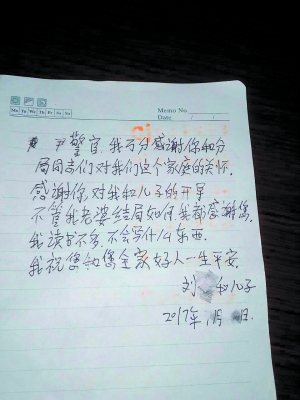 Memo No.
Mo Tu We Th Fr Sa Su
Date / /
尹警官,我万分感谢你和分
局同志们对我们这个家庭的关怀,
感谢你对我和儿子的开导
不管我老婆结局如何我都感谢您,
我读书不多,不会写什么东西.
我祝您和您全家好人一生平安.
刘 和儿子
2017年 月 日.